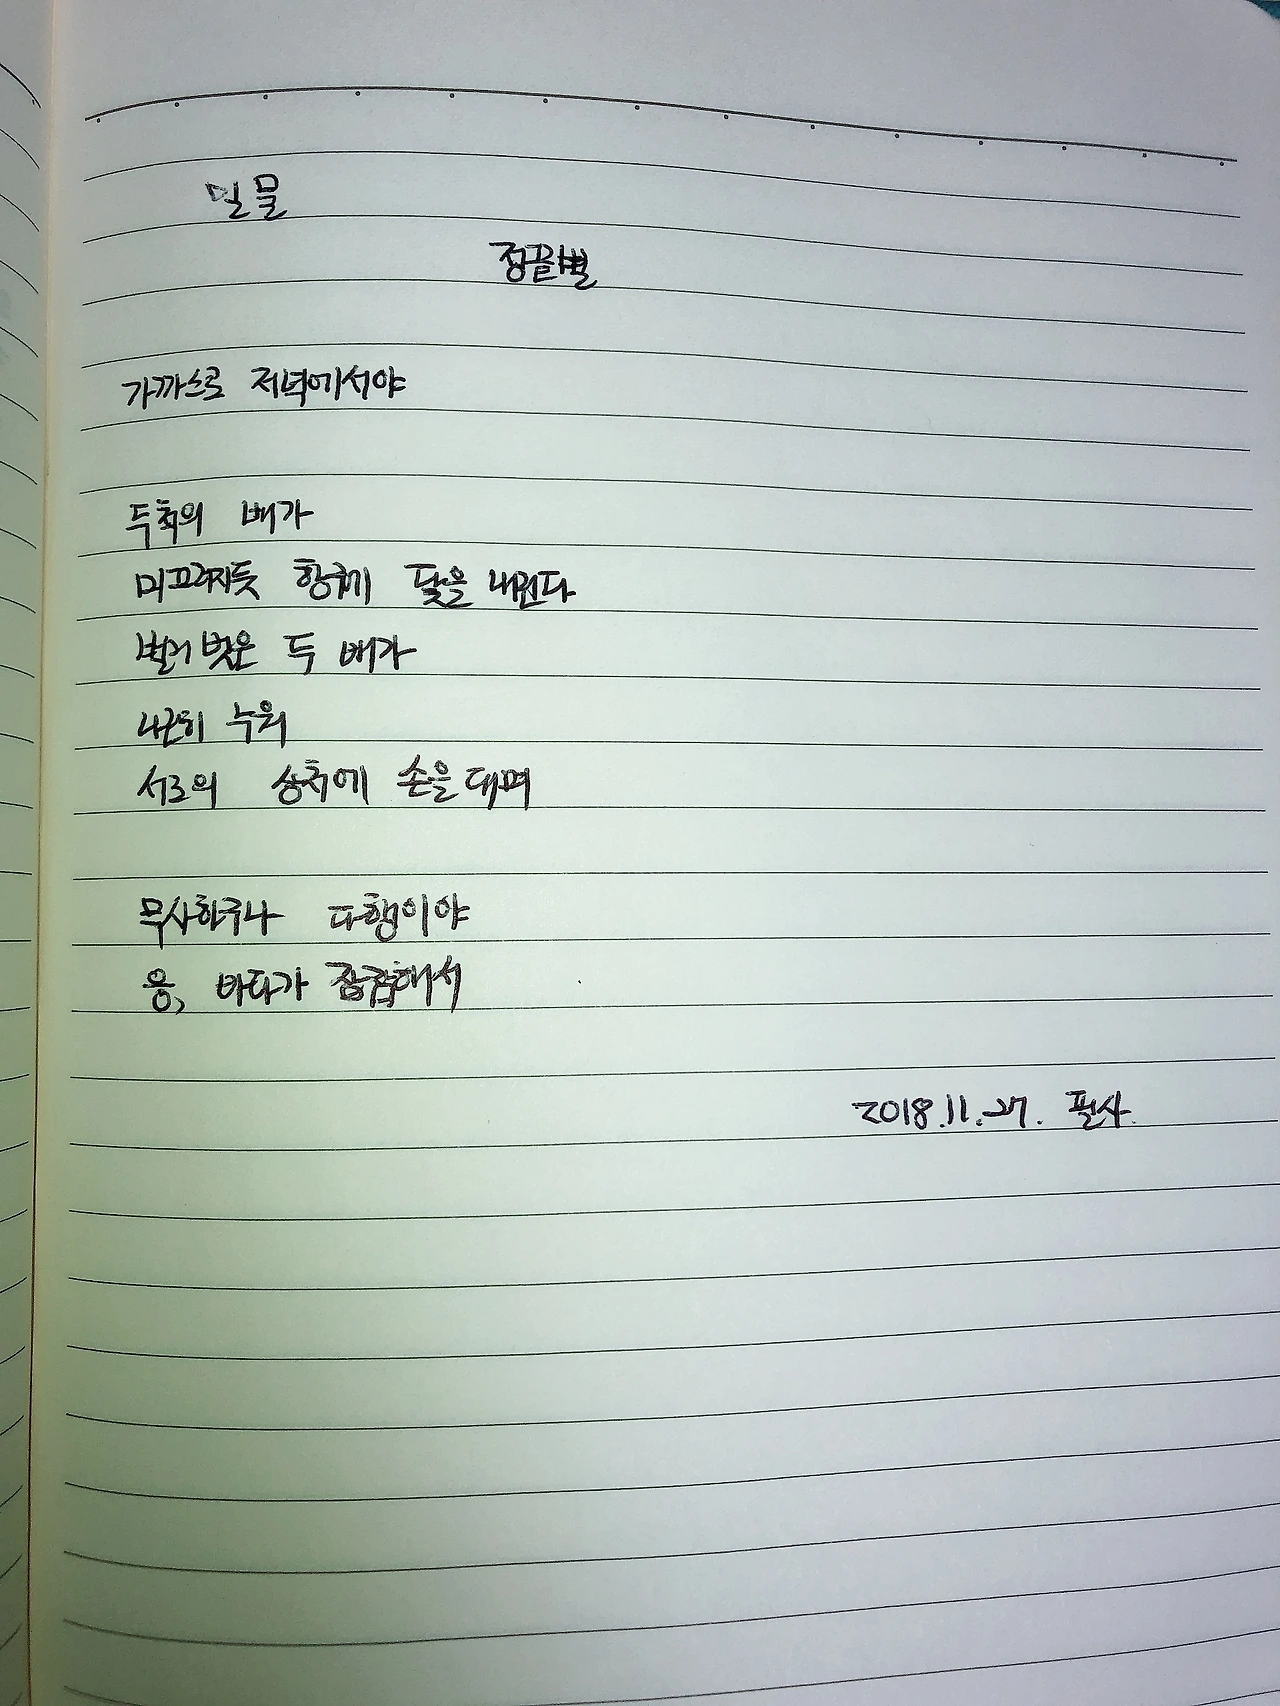 밀물
정끝별
가까스로 저녁에서야
두척의 배가
미끄러지듯 항구에 닻을 내린다
벌거벗은 두 배가
나란히 누워
서로의 상처에 손을 대며
무사하구나 다행이야
응, 바다가 잠잠해서
2018.11.27. 필사.